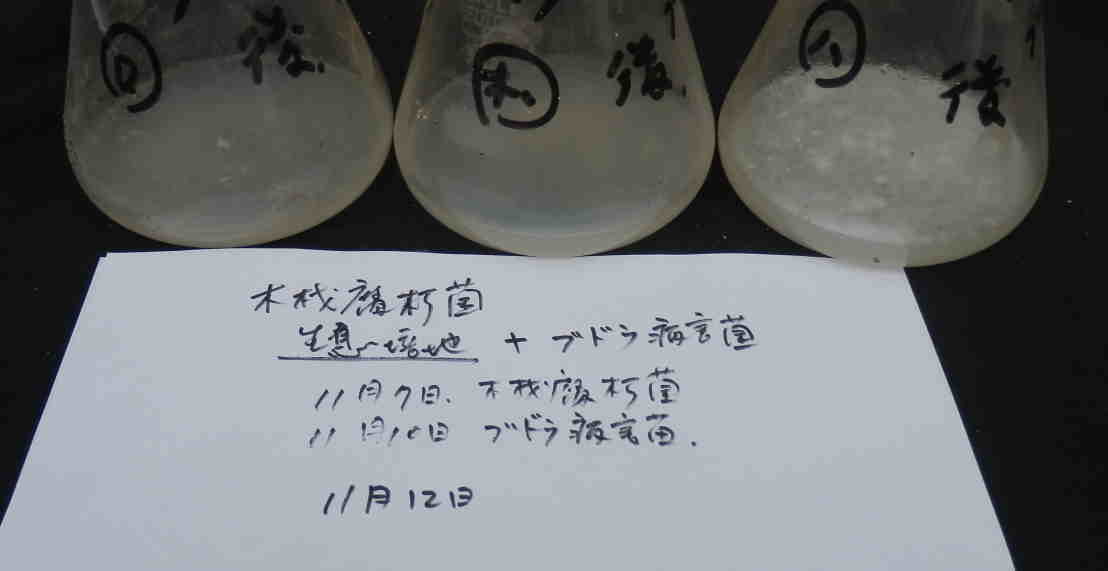 ロ 後
木 後
イ 後
木材腐朽菌
生息培地 + ブドウ病害菌
11月7日、木材腐朽菌
11月10日 ブドウ病害菌.
11月12日